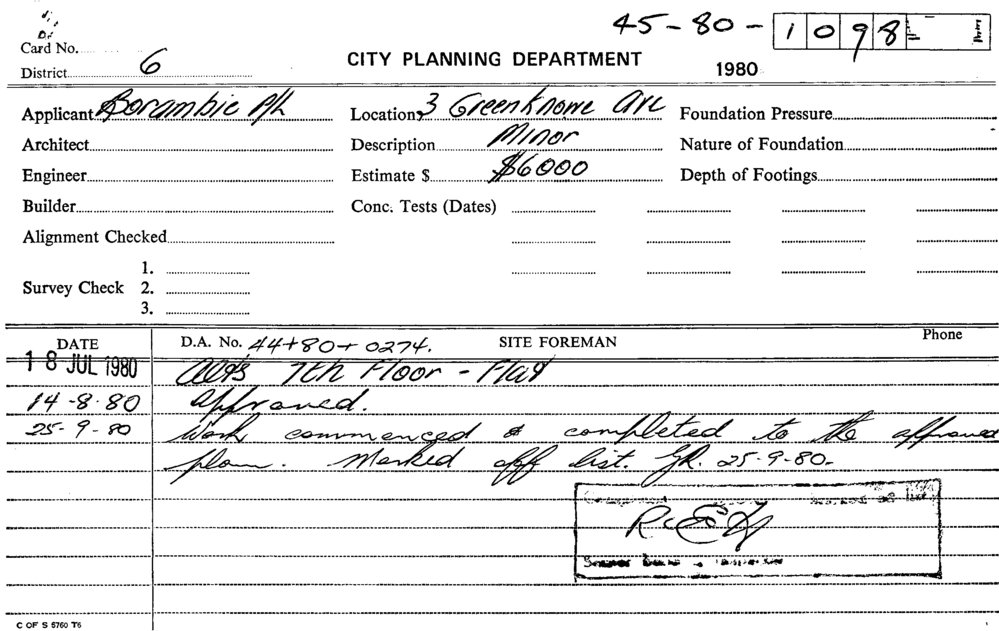 45-80-1098
Card No.
District 6
CITY PLANNING DEPARTMENT
1980
Applicant Borambie P/L
Location 3 Greenknowe Ave
Foundation Pressure
Architect
Description Minor
Nature of Foundation
Engineer
Estimate $ $6000
Depth of Footings
Builder
Conc. Tests (Dates)
Alignment Checked
Survey Check
1.
2.
3.
DATE
D.A. No. 44+80+0274.
SITE FOREMAN
Phone
18 JUL 1980 Alts 7th Floor - Flat
14-8-80 Approved.
25-9-80 Work commenced & completed to the approved
plan. Marked off list. 25-9-80.
C OF S 5760 T6